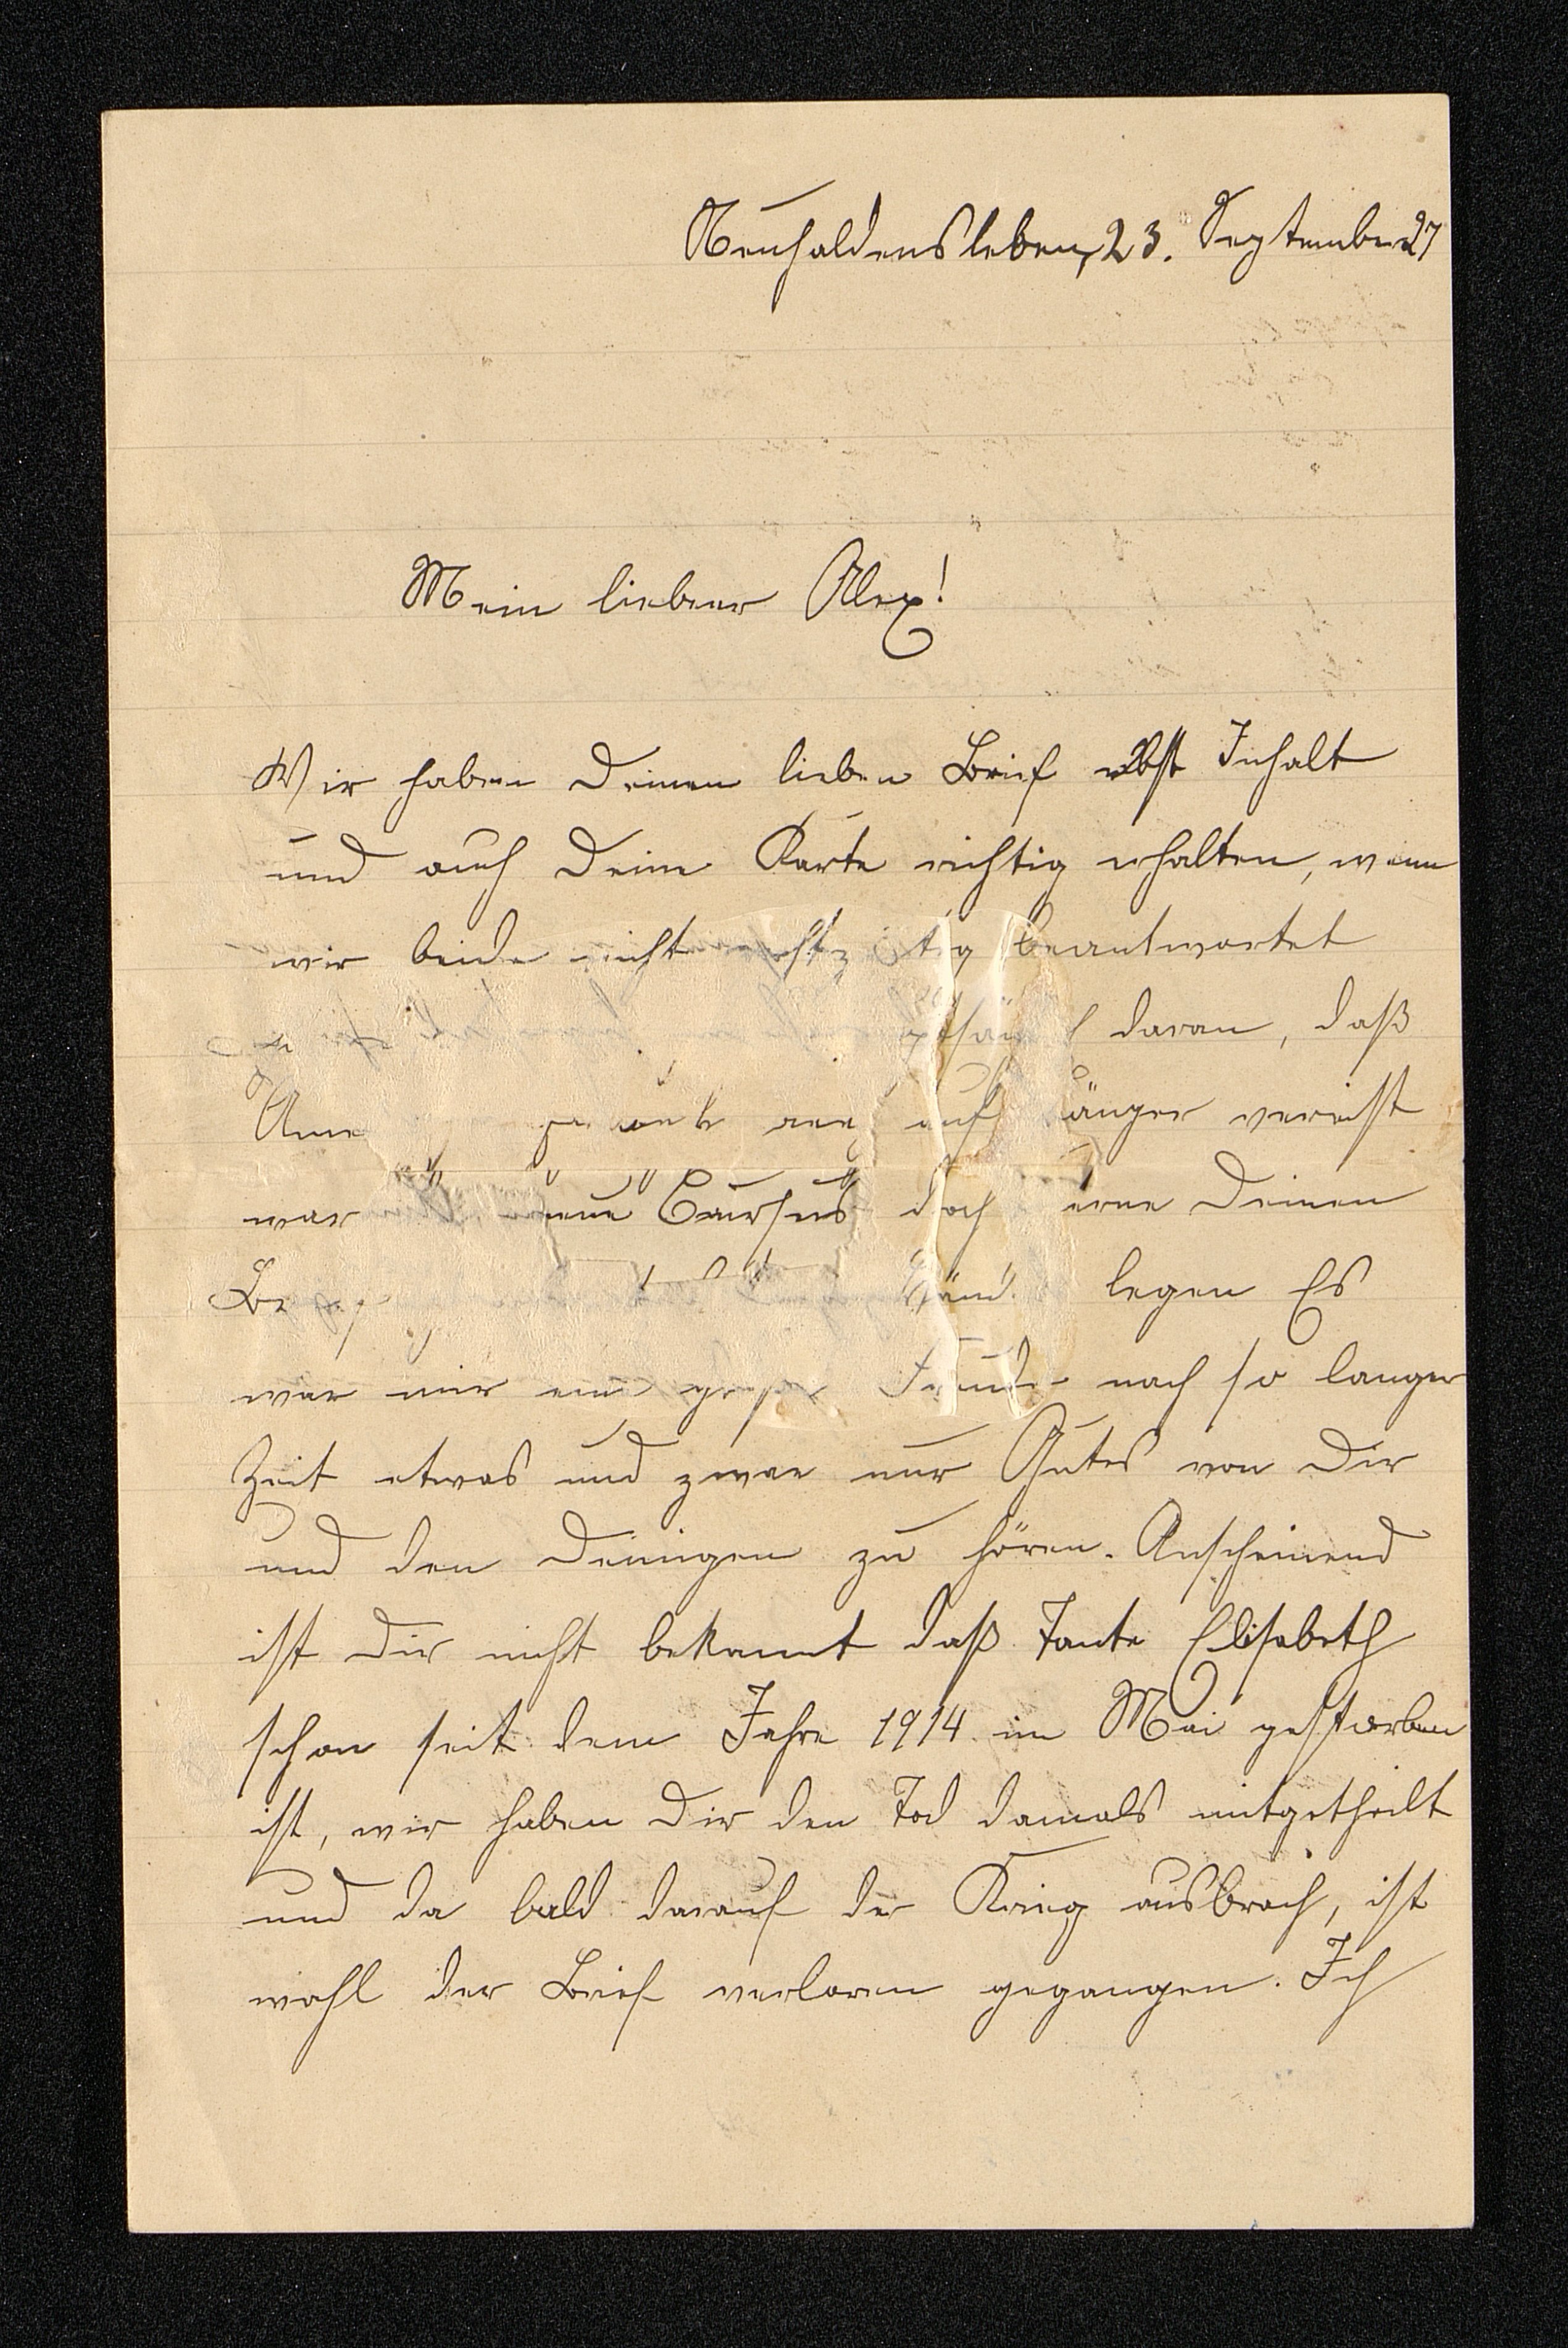 Neuhaldensleben, 23. September 27
Mein lieber Alex!
Wir haben Deinen lieben Brief nebst Inhalt
und auch Deine Karte richtig erhalten, wenn
wir beide nicht beantwortet
daran, daß
auf länger verreist
war doch gerne Deinen
legen Es
war mir eine große Freude nach so langer
Zeit etwas und zwar nur Gutes von Dir
und den Deinigen zu hören. Anscheinend
ist Dir nicht bekannt daß Tante Elisabeth
schon seit dem Jahre 1914 im Mai gestorben
ist, wir haben Dir den Tod damals mitgetheilt
und da bald darauf der Krieg ausbrach, ist
wohl der Brief verloren gegangen. Ich